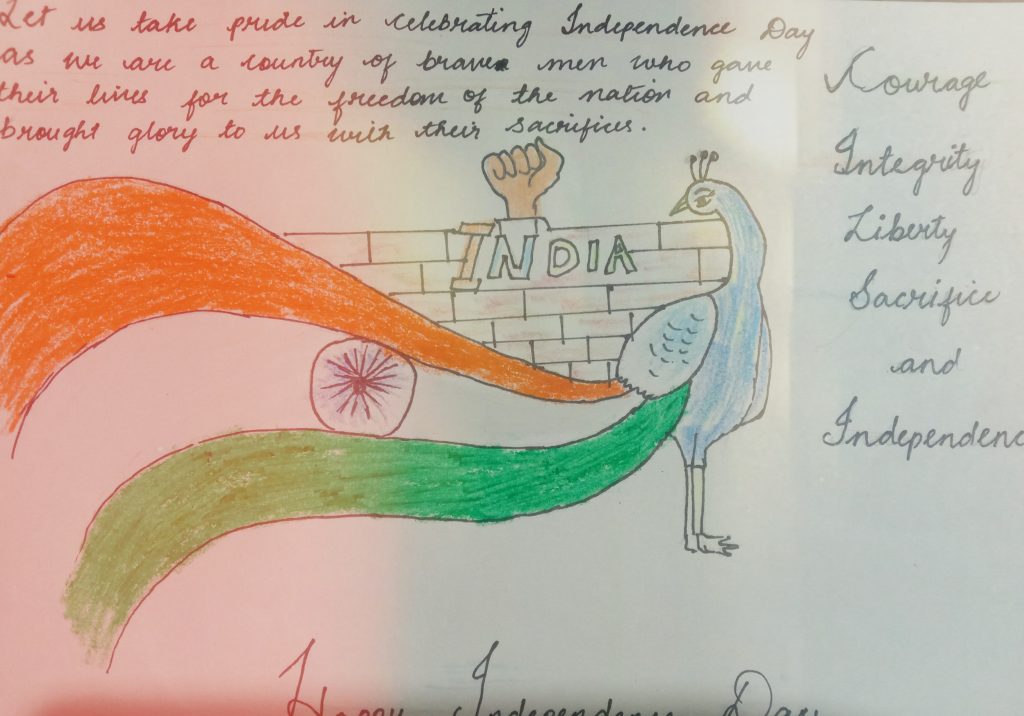 Let us take pride in celebrating Independence Day
as we are a country of brave men who gave
their lives for the freedom of the nation and
brought glory to us with their sacrifices.
INDIA
Courage
Integrity
Liberty
Sacrifice
and
Independenc
Happy Independence Day